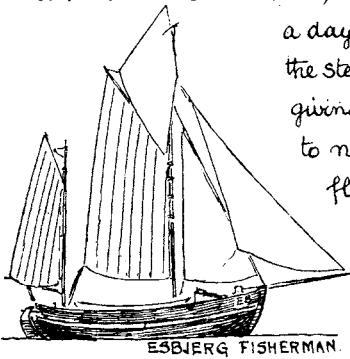 a day
the ste
givin
to n
fl
ESBJERG FISHERMAN.